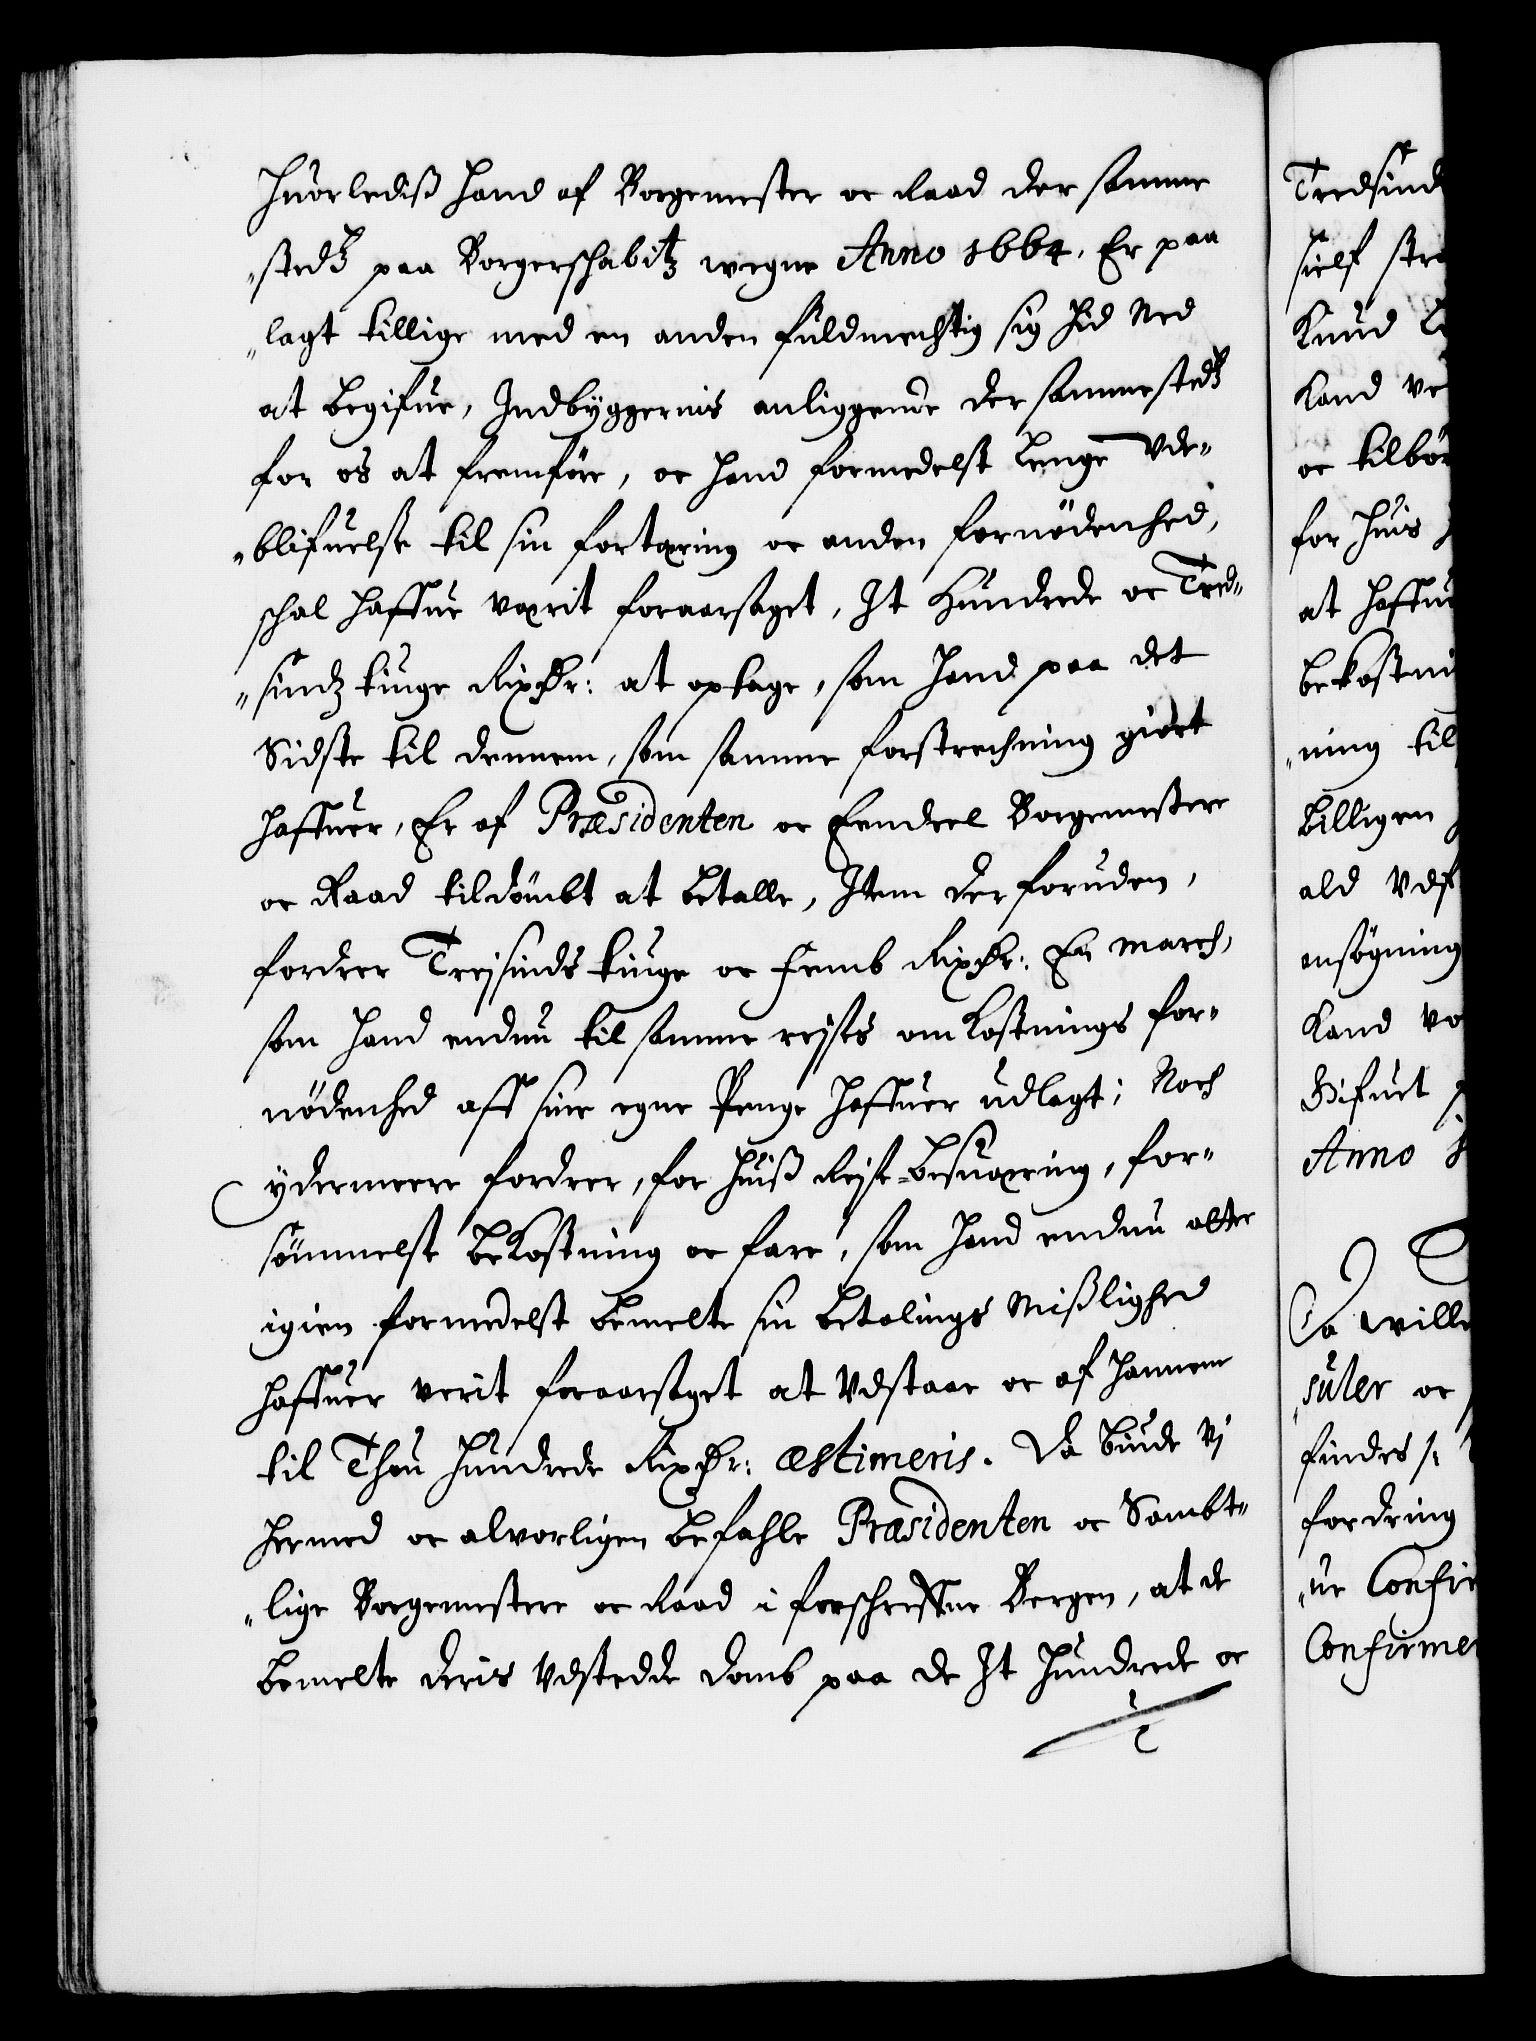 huorlediß hand af Borgemester oc Raad der samme
"stedtz paa Borgerschabitz wegne Anno 1664. Er paa
"lagt tillige med en anden fuldmechtig sig hid Ned
at begifue, Indbyggernis anliggende der sammestedtz
for os at fremföre, oc hand formedelst lenge Vde-
"blifuelse til sin fortæring oc anden fornödenhed,
schal haffue værit foraarsaget, It Hundrede oc Tred-
"sindz tiuge Rixdr: at optage, som hand paa det
Sidste til dennem, som samme forstrechning giort
haffuer, Er af Præsidenten oc Eendeel Borgemestere
oc Raad tildömbt at betalle, Item der foruden,
fordrer Trejsinds tiuge oc femb Rixdr: En march,
som hand endnu til samme rejses omkostnings for-
nödenhed aff sine egne Penge haffuer udlagt; Noch
ydermeere fordrer, for huiß Rejse-besuæring, for-
sömmelse bekostning oc fare, som hand endnu atter
igien formedelst bemelte sin betalings Mißlighed
haffuer verit foraarsaget at Vdstaae oc af hannem
til Thou hundrede Rixdr: æstimeris. Da biude Vj
hermed oc alvorligen befahle Præsidenten oc Sambt-
"lige Borgemestere oc Raad i forschreffne Bergen, at de
bemelte deris Vdstedde Domb paa de It hundrede oc
Tredsind
sielf
Knud
Kand
oc tilbör
for huis
at haffue
bekostni
"ning til
billigen
ald Vdf
ansögning
Kand
Bifuet
Anno
Da wille
"suler oc
findes
fordring
"ne Confir
Confirme